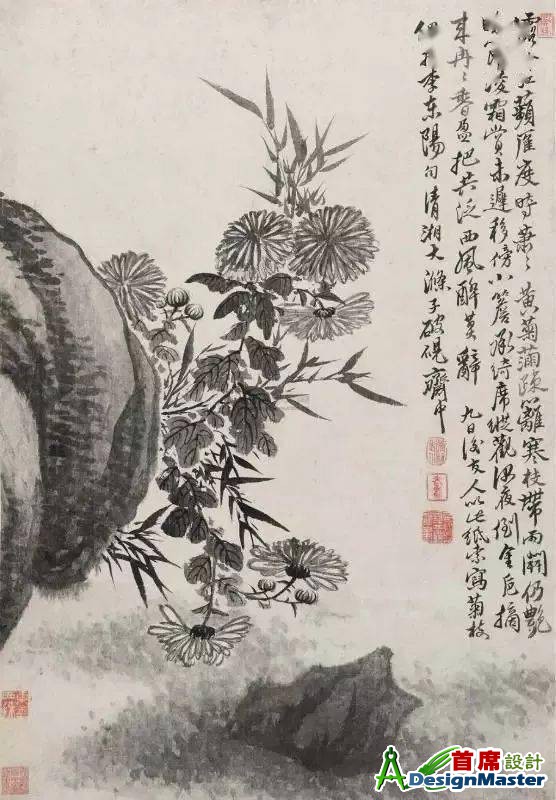 蘋雁度時蕭〻黃菊滿疎籬寒枝帶雨開仍艷
凌霜賞未遲移傍小簷承詩席縱觀深夜倒金卮摘
來冉〻香盈把共泛西風醉莫辭 九日後友人以此紙索寫菊枝
李東陽句清湘大滌子破硯齋中
首席設計
DesignMaster